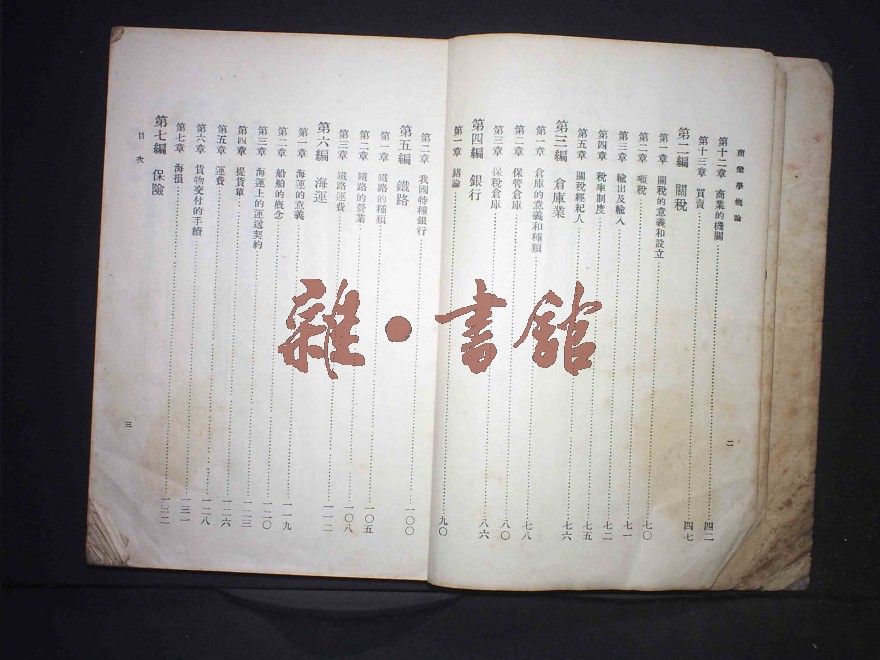 商業學概論
第十二章 商業的機關 四二
第十三章 買賣 四七
第二編 關稅
第一章 關稅的意義和設立 七〇
第二章 噸稅 七一
第三章 輸出及輸入 七二
第四章 稅率制度 七五
第五章 關稅經紀人 七六
第三編 倉庫業
第一章 倉庫的意義和種類 七八
第二章 保管倉庫 八〇
第三章 保稅倉庫 八六
第四編 銀行
第一章 緒論 九〇
二
第二章 我國特種銀行 一〇〇
第五編 鐵路
第一章 鐵路的種類 一〇五
第二章 鐵路的營業 一〇八
第三章 鐵路運費 一一二
第六編 海運
第一章 海運的意義
第二章 船舶的概念 一一九
第三章 海運上的運送契約 一二〇
第四章 提貨單 一二三
第五章 運費 一二六
第六章 貨物交付的手續 一二八
第七章 海損 一三一
第七編 保險 一三二
目次
三
雜·書館